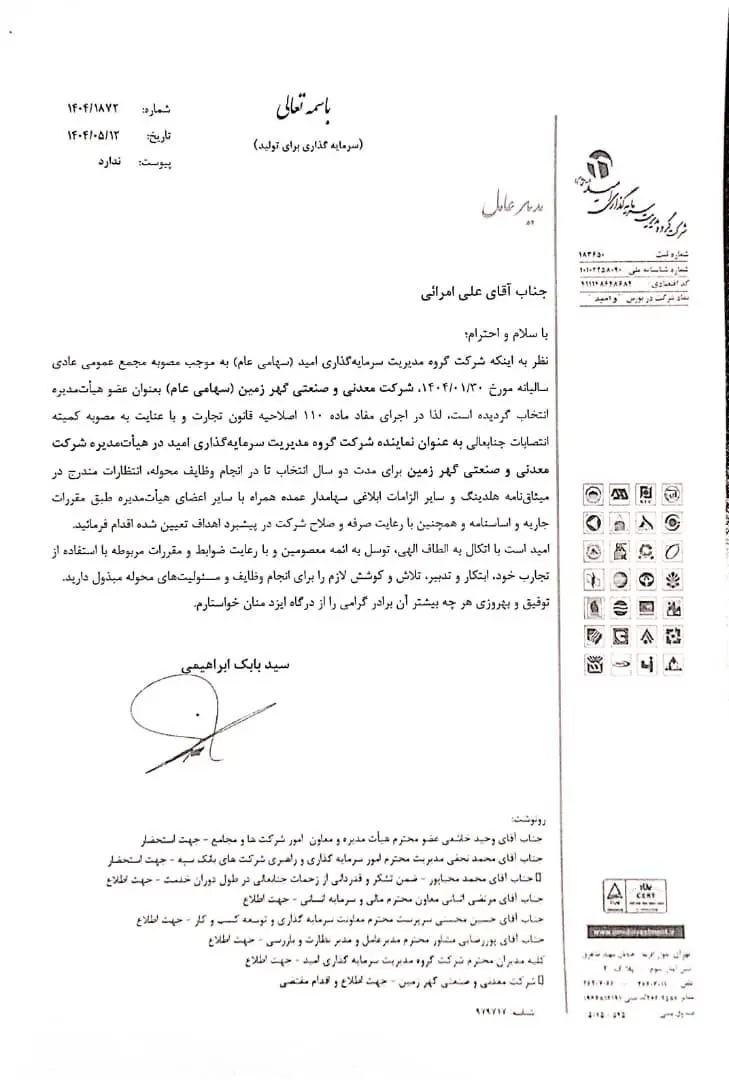 باسمه تعالی
(سرمایه گذاری برای تولید)
شماره: ۱۴۰۴/۱۸۷۲
تاریخ: ۱۴۰۴/۰۵/۱۲
پیوست: ندارد
شرکت گروه مدیریت سرمایه گذاری امید
شماره ثبت ۱۸۳۶۵۰
شماره شناسه ملی ۱۰۱۰۲۲۵۸۰۹۰
کد اقتصادی ۴۱۱۱۴۸۶۴۸۶۸۴
نماد شرکت در بورس "وامید"
مدیر عامل
جناب آقای علی امرائی
با سلام و احترام؛
نظر به اینکه شرکت گروه مدیریت سرمایه‌گذاری امید (سهامی عام) به موجب مصوبه مجمع عمومی عادی
سالیانه مورخ ۱۴۰۴/۰۱/۳۰، شرکت معدنی و صنعتی گهر زمین (سهامی عام) بعنوان عضو هیأت‌مدیره
انتخاب گردیده است، لذا در اجرای مفاد ماده ۱۱۰ اصلاحیه قانون تجارت و با عنایت به مصوبه کمیته
انتصابات جنابعالی به عنوان نماینده شرکت گروه مدیریت سرمایه‌گذاری امید در هیأت‌مدیره شرکت
معدنی و صنعتی گهر زمین برای مدت دو سال انتخاب تا در انجام وظایف محوله، انتظارات مندرج در
میثاق‌نامه هلدینگ و سایر الزامات ابلاغی سهامدار عمده همراه با سایر اعضای هیأت‌مدیره طبق مقررات
جاریه و اساسنامه و همچنین با رعایت صرفه و صلاح شرکت در پیشبرد اهداف تعیین شده اقدام فرمائید.
امید است با اتکال به الطاف الهی، توسل به ائمه معصومین و با رعایت ضوابط و مقررات مربوطه با استفاده از
تجارب خود، ابتکار و تدبیر، تلاش و کوشش لازم را برای انجام وظایف و مسئولیت‌های محوله مبذول دارید.
توفیق و بهروزی هر چه بیشتر آن برادر گرامی را از درگاه ایزد منان خواستارم.
سید بابک ابراهیمی
رونوشت:
جناب آقای وحید خاشعی عضو محترم هیأت مدیره و معاون امور شرکت ها و مجامع - جهت استحضار
جناب آقای محمد نجفی مدیریت محترم امور سرمایه گذاری و راهبری شرکت های بانک سپه - جهت استحضار
جناب آقای محمد محیاپور - ضمن تشکر و قدردانی از زحمات جنابعالی در طول دوران خدمت - جهت اطلاع
جناب آقای مرتضی معاون محترم مالی و سرمایه انسانی - جهت اطلاع
جناب آقای حسین محسنی سرپرست محترم معاونت سرمایه گذاری و توسعه کسب و کار - جهت اطلاع
جناب آقای پوررضایی مشاور محترم مدیرعامل و مدیر نظارت و بازرسی - جهت اطلاع
کلیه مدیران محترم شرکت گروه مدیریت سرمایه گذاری امید - جهت اطلاع
شرکت معدنی و صنعتی گهر زمین - جهت اطلاع و اقدام مقتضی
شناسه: ۹۷۹۷۱۷
TUV
CERT
www.omidinvestment.ir